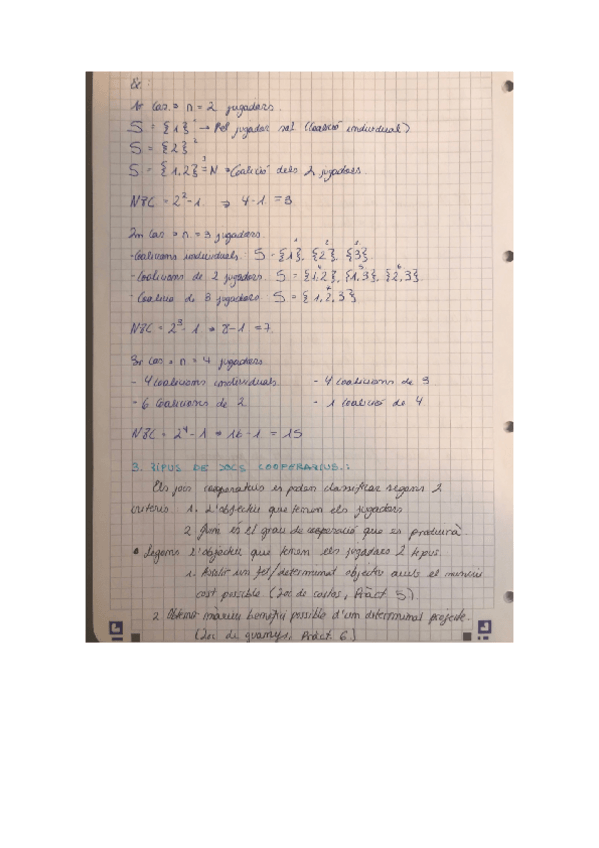 Ex:
1r Cas → n = 2 jugadors.
S = {1} 1 → Pel jugador sol (Coalició individual)
S = {2} 2
S = {1,2} 3 = N → Coalició dels 2 jugadors.
NºC = 2² - 1 → 4 - 1 = 3
2n Cas → n = 3 jugadors.
- Coalicions individuals. S = {1}, {2}, {3}
- Coalicions de 2 jugadors. S = {1,2}, {1,3}, {2,3}
- Coalició de 3 jugadors S = {1,2,3}
NºC = 2³ - 1 → 8 - 1 = 7
3r Cas → n = 4 jugadors
- 4 Coalicions individuals - 4 coalicions de 3
- 6 Coalicions de 2 - 1 coalició de 4
NºC = 2⁴ - 1 → 16 - 1 = 15
3. TIPUS DE JOCS COOPERATIUS.:
Els jocs cooperatius es poden classificar segons 2
criteris 1. L'objectiu que tenen els jugadors
2. Quin és el grau de cooperació que es produirà
• Segons l'objectiu que tenen els jugadors 2 tipus.
1. Assolir un fet/determinat objectiu amb el mínim
cost possible (Joc de costos, Pràct 5)
2. Obtenir màxim benefici possible d'un determinat projecte.
(Joc de guanys, Pràct. 6)